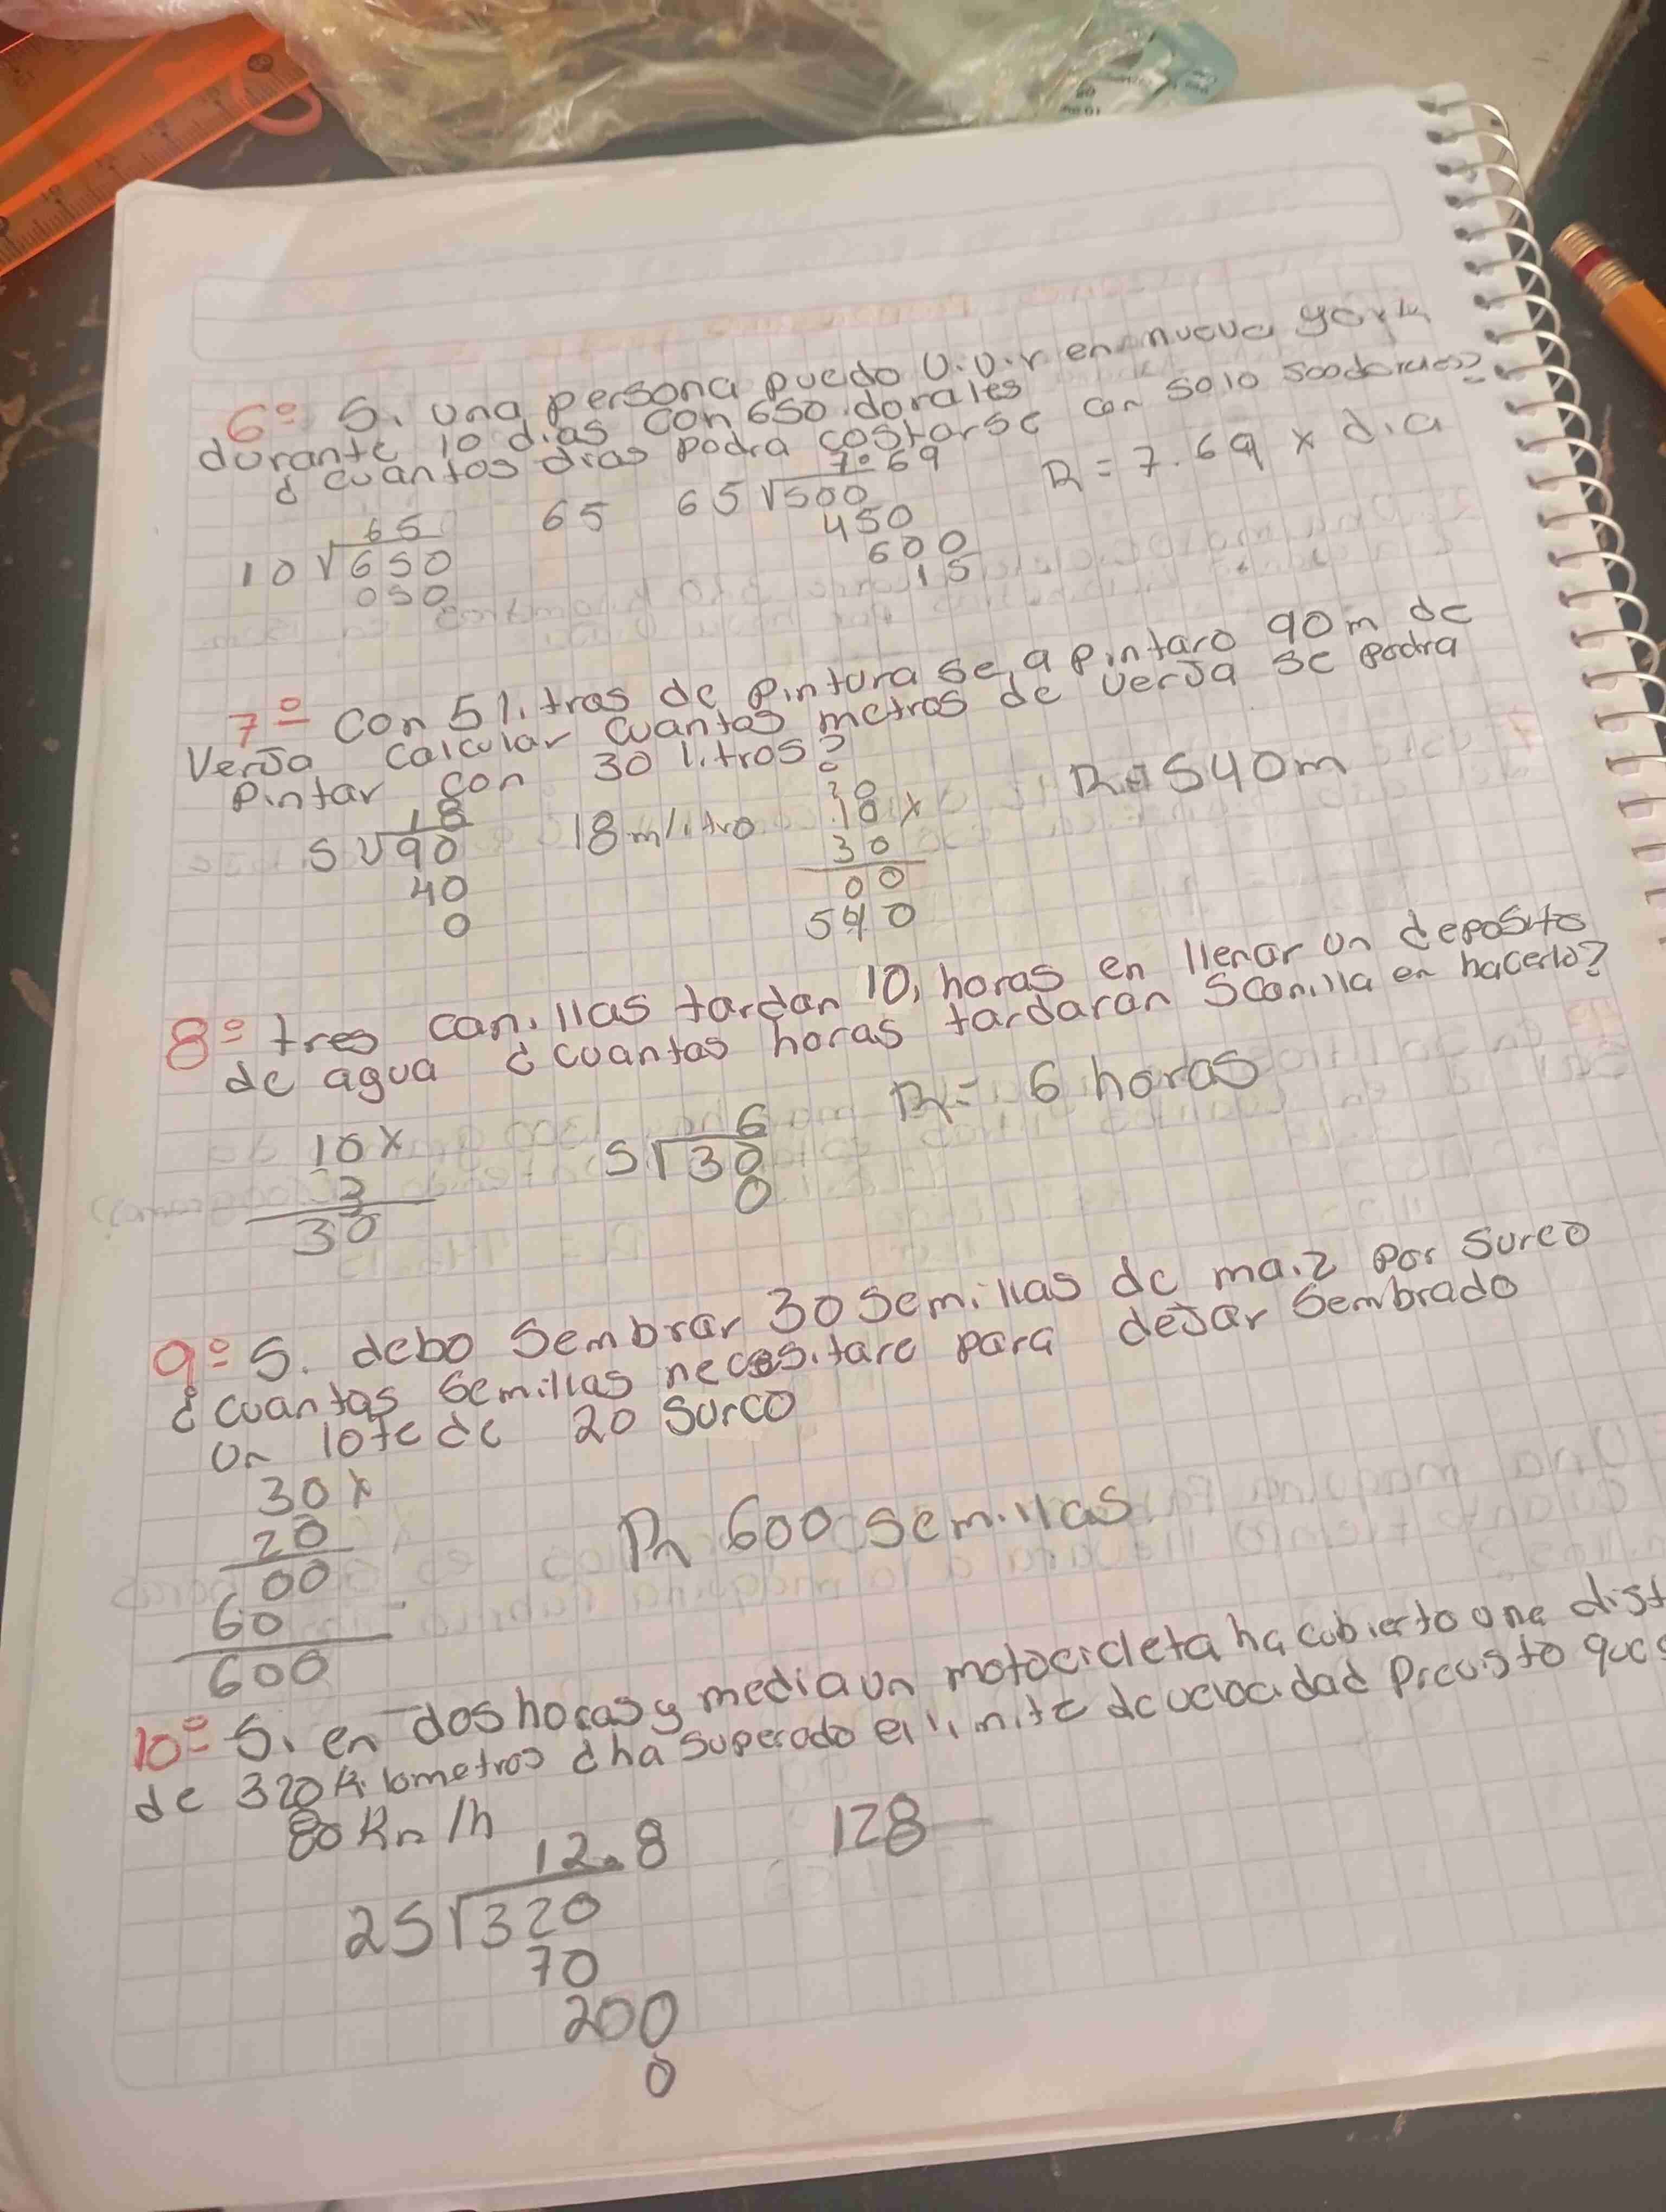 6º S. una persona puedo U.U.r en nueva york
durante 10 dias con 650 dorales
¿ cuantos dias podra costarse con solo 500dorales?
65
10√650
050
65
7.69
65√500
450
600
15
R = 7.69 x dia
7º Con 5 litros de pintura se a pintaro 90m de
Verja calcular cuantos metros de verja se podra
pintar con 30 litros?
18
5√90
40
0
18m/litro
18x
30
00
540
R = 540m
8º tres canillas tardan 10, horas en llenar un deposito
de agua ¿ cuantas horas tardaran 5canilla en hacerlo?
10x
3
30
6
5√30
0
R = 6 horas
9º S. debo Sembrar 30 semillas de maiz por surco
¿ cuantas semillas necesitare para dejar Sembrado
un lote de 20 surco
30x
20
00
60
600
R 600 semillas
10º S. en dos horas y media un motocicleta ha cubierto una dist
de 320 Kilometros ¿ha superado el limite de velocidad previsto que
80 Km/h
12.8
25√320
70
200
0
128